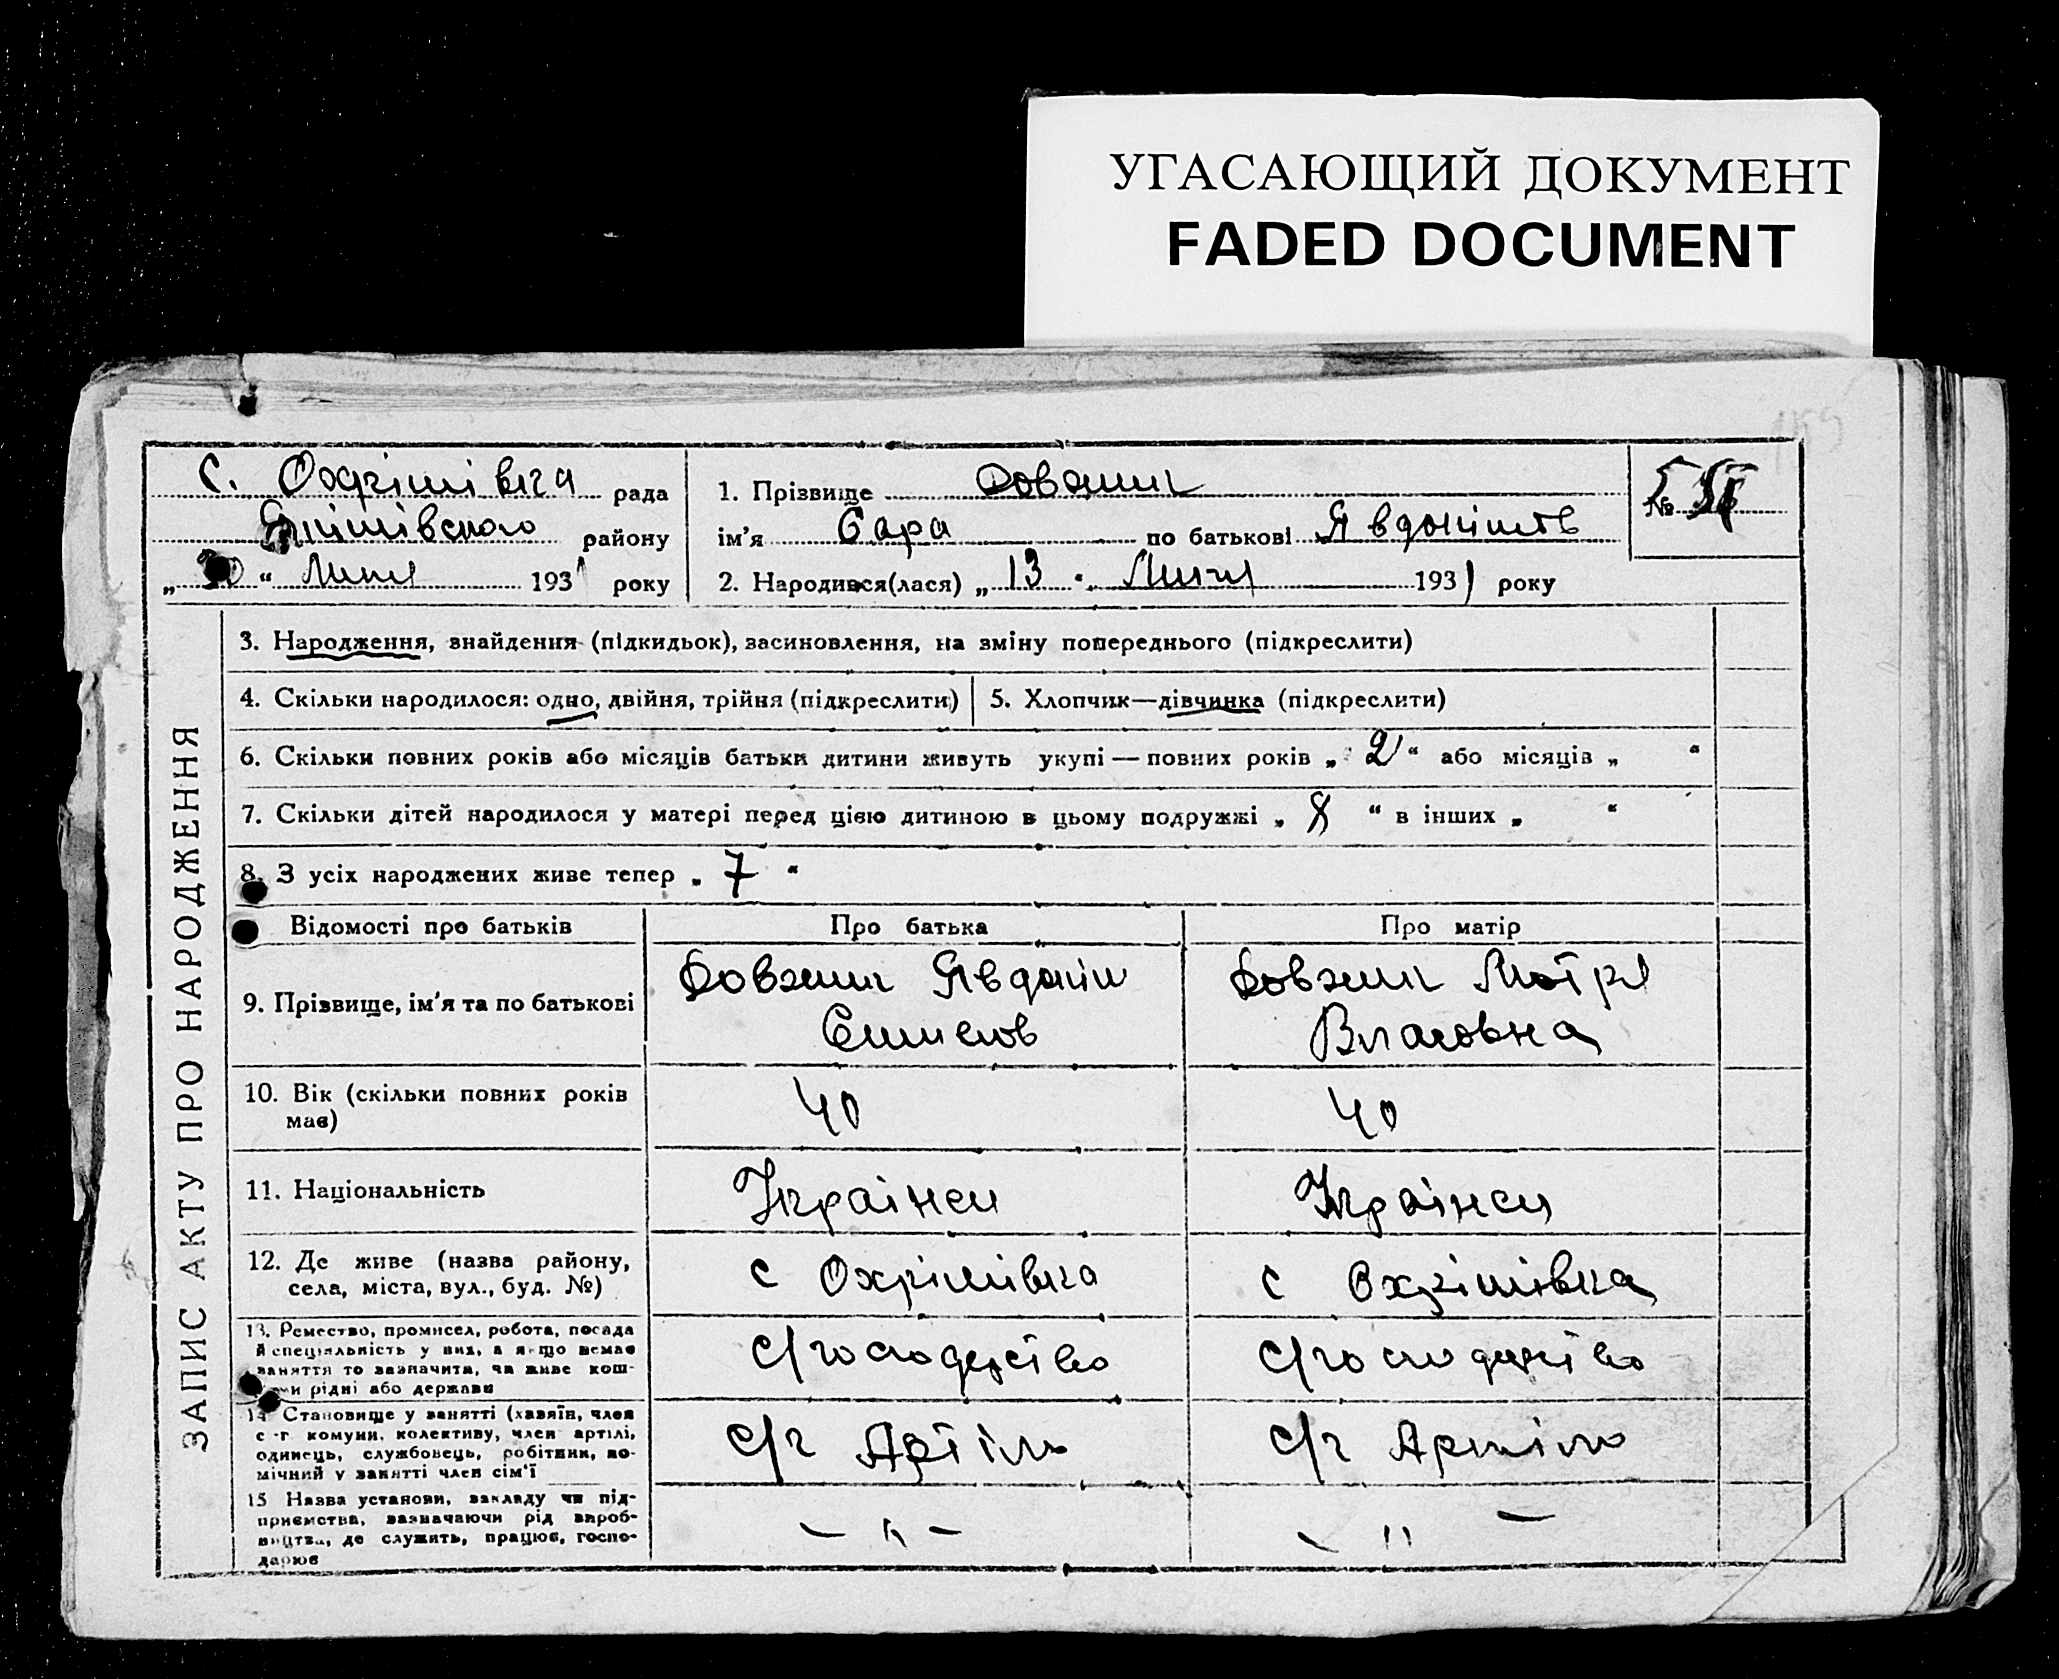 УГАСАЮЩИЙ ДОКУМЕНТ
FADED DOCUMENT
ЗАПИС АКТУ ПРО НАРОДЖЕННЯ
с. Охрімівка рада
району
„ 30 “ Липня 1931 року
1. Прізвище Довжик
ім’я Сара по батькові Явдокімов
2. Народився(лася) „ 13 “ Липня 1931 року
№
3. Народження, знайдення (підкидьок), засиновлення, на зміну попереднього (підкреслити)
4. Скільки народилося: одно, двійня, трійня (підкреслити)
5. Хлопчик—дівчинка (підкреслити)
6. Скільки повних років або місяців батьки дитини живуть укупі — повних років „ 2 “ або місяців „ “
7. Скільки дітей народилося у матері перед цією дитиною в цьому подружжі „ 8 “ в інших „ “
8. З усіх народжених живе тепер „ 7 “
Відомості про батьків Про батька Про матір
9. Прізвище, ім’я та по батькові
Довжик Явдокім
Довжик Мотря
Власовна
10. Вік (скільки повних років має)
40
40
11. Національність
Українци
Українци
12. Де живе (назва району,
села, міста, вул., буд. №)
с Охрімівка
с Охрімівка
13. Ремество, промисел, робота, посада
й спеціяльність у них, а якщо немає
заняття то зазначити, чи живе кош-
рідні або держави
с/господарство
с/господарство
14 Становище у занятті (хазяїн, член
с.-г комуни, колективу, член артілі,
одинець, службовець, робітник, по-
мічний у занятті член сім’ї
с/г Артіль
с/г Артіль
15 Назва установи, закладу чи під-
приємства, зазначаючи рід вироб-
ництва, де служить, працює, госпо-
дарює
— " —
— " —